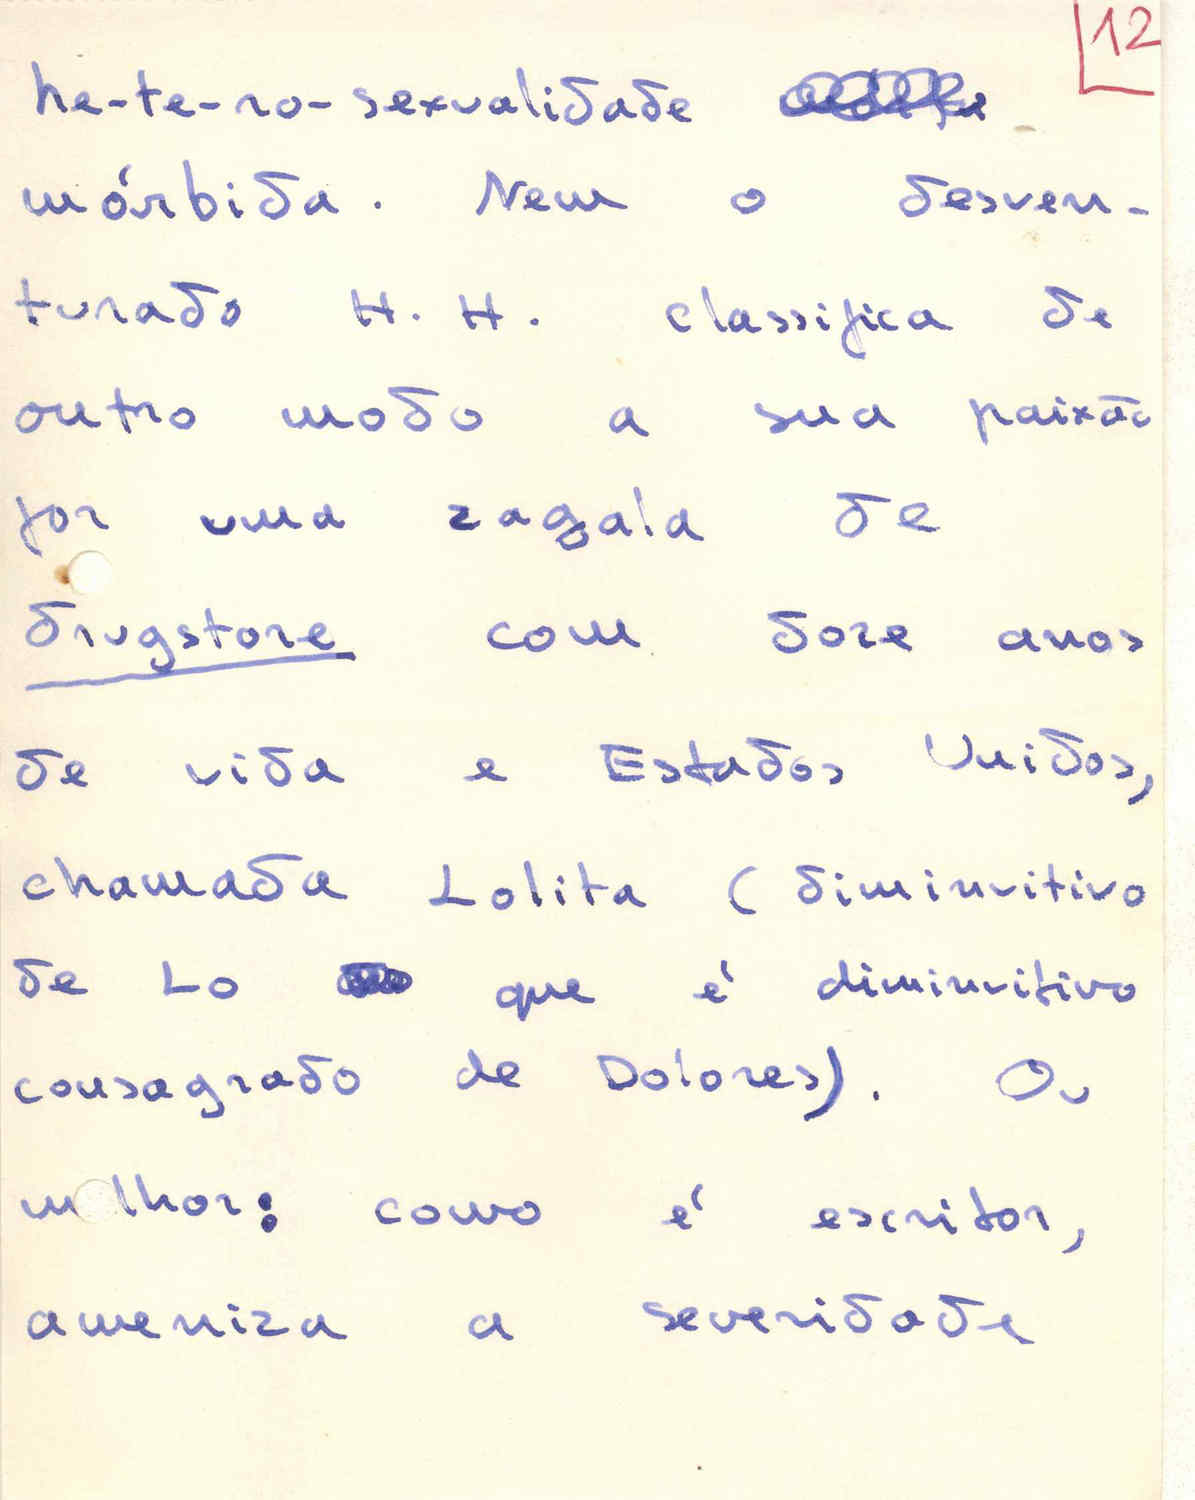 12
he-te-ro-sexualidade
mórbida. Nem o desven-
turado H. H. classifica de
outro modo a sua paixão
por uma zagala de
drugstore com doze anos
de vida e Estados Unidos,
chamada Lolita (diminuitivo
de Lo que é diminuitivo
consagrado de Dolores). Ou
melhor: como é escritor,
ameniza a severidade